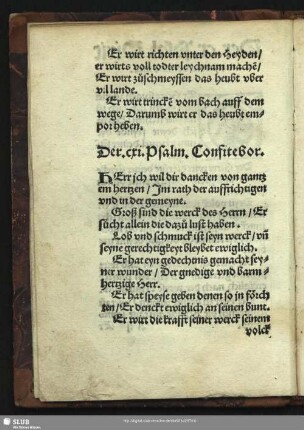 Er wirt richten vnter den Heyden/
er wirts voll todter leychnam machē/
Er wirt zůschmeyssen das heubt vber
vil lande.
Er wirt trinckē vom bach auff dem
wege/ Darumb wirt er das heubt em-
por heben.
Der.cxi.Psalm. Confitebor.
HErr ich wil dir dancken von gantz
em hertzen/ Im rath der auffrichtigen
vnd in der gemeyne.
Groß sind die werck des Herrn/ Er
sücht allein die dazü lust haben.
Lob vnd schmuck ist seyn werck/ vñ
seyne gerechtigkeyt bleybet ewiglich.
Er hat eyn gedechtnis gemacht sey-
ner wunder/ Der gnedige vnd barm-
hertzige Herr.
Er hat speyse geben denen so jn förch
ten/ Er denckt ewiglich an seinen bunt.
Er wirt die krafft seiner werck seinem
volck
SLUB
Wir führen Wissen.